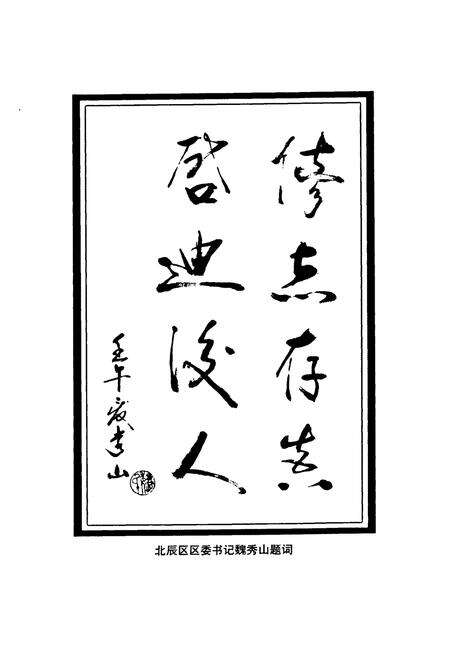 修志存真
啓迪後人
壬午 秀山
北辰区区委书记魏秀山题词